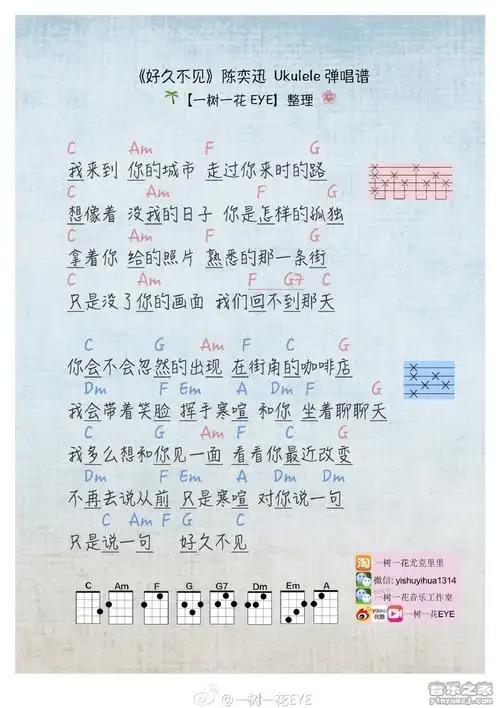 《好久不见》陈奕迅 Ukulele 弹唱谱
【一树一花 EYE】整理
C Am F G
我来到 你的城市 走过你来时的路
C Am F G
想像着 没我的日子 你是怎样的孤独
C Am F G
拿着你 给的照片 熟悉的那一条街
C Am F G7 C
只是没了你的画面 我们回不到那天
C G Am F C G
你会不会忽然的出现 在街角的咖啡店
Dm F Em A Dm F G
我会带着笑脸 挥手寒喧 和你 坐着聊聊天
C G Am F C G
我多么想和你见一面 看看你最近改变
Dm F Em A Dm F
不再去说从前 只是寒喧 对你说一句
C Am F G C
只是说一句 好久不见
淘 一树一花尤克里里
微信: yishuyihua1314
一树一花音乐工作室
YOUKU 优酷 一树一花EYE
C Am F G G7 Dm Em A
@一树一花EYE
音乐之家
yinyuezj.com